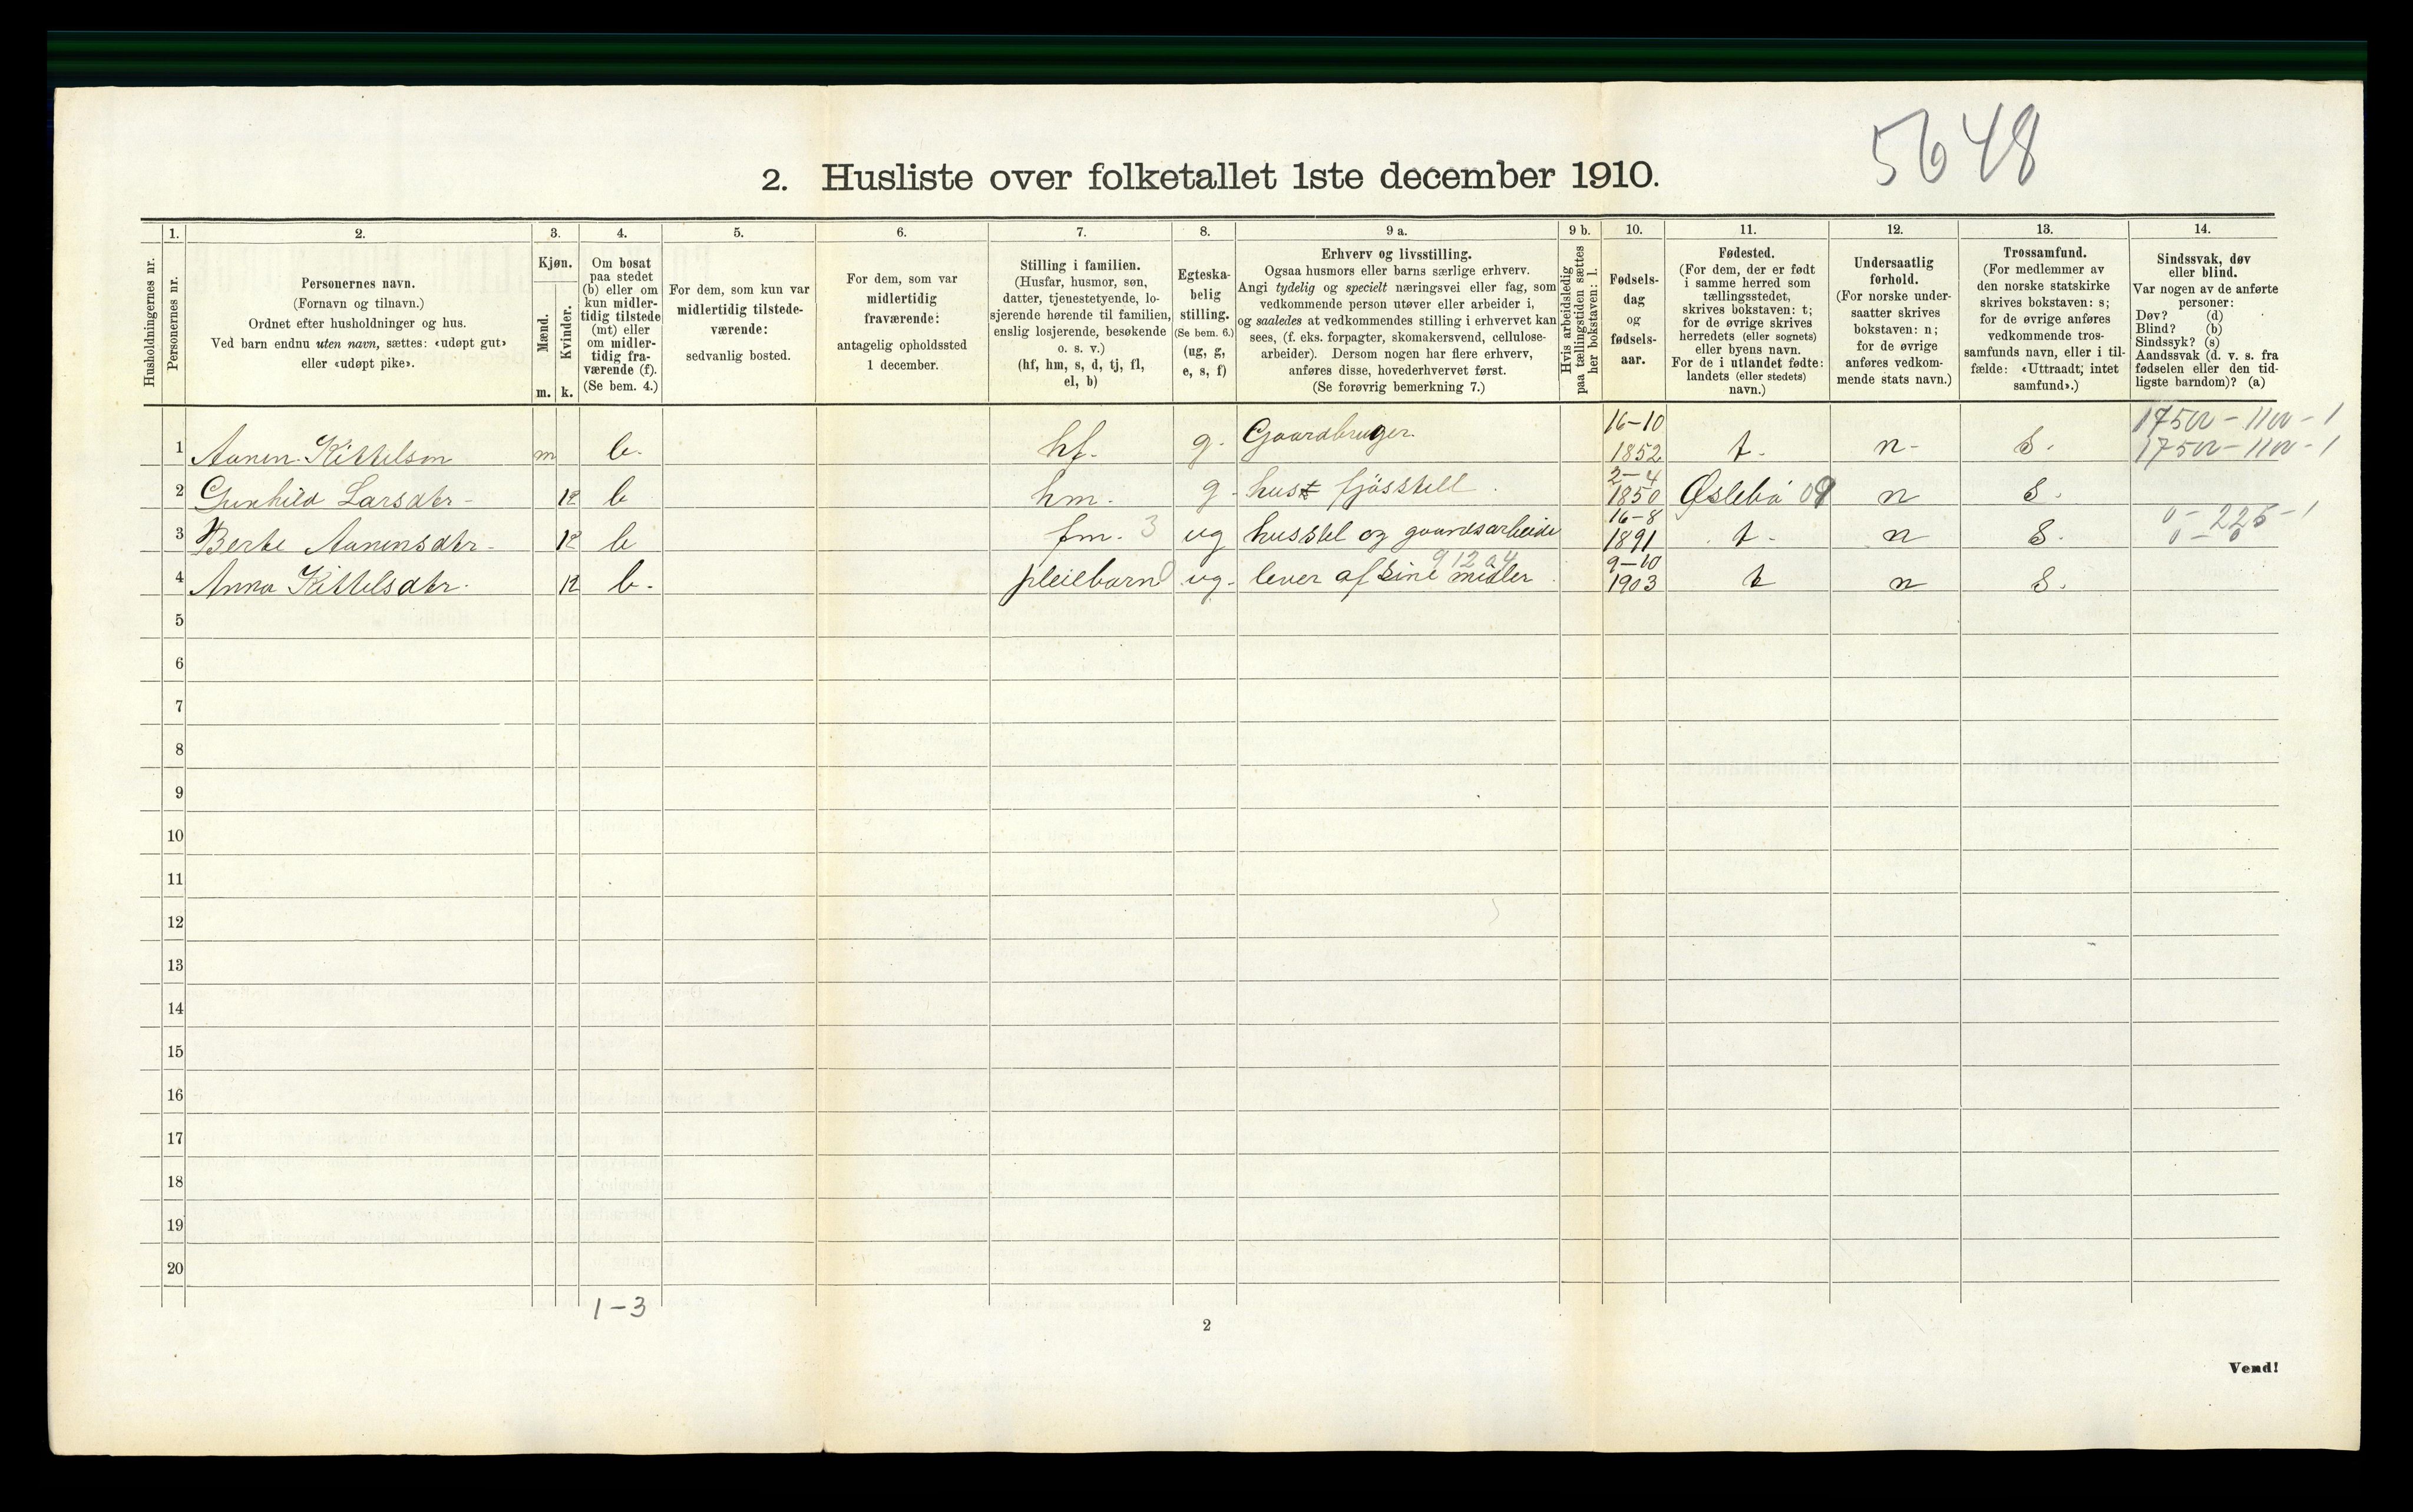 5648
2. Husliste over folketallet 1ste december 1910.
Husholdningernes nr.
1.
Personernes nr.
2.
Personernes navn.
(Fornavn og tilnavn.)
Ordnet efter husholdninger og hus.
Ved barn endnu uten navn, sættes: «udøpt gut»
eller «udøpt pike».
3.
Kjøn.
Mænd.
Kvinder.
m. k.
4.
Om bosat
paa stedet
(b) eller om
kun midler-
tidig tilstede
(mt) eller
om midler-
tidig fra-
værende (f).
(Se bem. 4.)
5.
For dem, som kun var
midlertidig tilstede-
værende:
sedvanlig bosted.
6.
For dem, som var
midlertidig
fraværende:
antagelig opholdssted
1 december.
7.
Stilling i familien.
(Husfar, husmor, søn,
datter, tjenestetyende, lo-
sjerende hørende til familien,
enslig losjerende, besøkende
o. s. v.)
(hf, hm, s, d, tj, fl,
el, b)
8.
Egteska-
belig
stilling.
(Se bem. 6.)
(ug, g,
e, s, f)
9 a.
Erhverv og livsstilling.
Ogsaa husmors eller barns særlige erhverv.
Angi tydelig og specielt næringsvei eller fag, som
vedkommende person utøver eller arbeider i,
og saaledes at vedkommendes stilling i erhvervet kan
sees, (f. eks. forpagter, skomakersvend, cellulose-
arbeider). Dersom nogen har flere erhverv,
anføres disse, hovederhvervet først.
(Se forøvrig bemerkning 7.)
9 b.
Hvis arbeidsledig
paa tællingstiden sættes
her bokstaven: l.
10.
Fødsels-
dag
og
fødsels-
aar.
11.
Fødested.
(For dem, der er født
i samme herred som
tællingsstedet,
skrives bokstaven: t;
for de øvrige skrives
herredets (eller sognets)
eller byens navn.
For de i utlandet fødte:
landets (eller stedets)
navn.)
12.
Undersaatlig
forhold.
(For norske under-
saatter skrives
bokstaven: n;
for de øvrige
anføres vedkom-
mende stats navn.)
13.
Trossamfund.
(For medlemmer av
den norske statskirke
skrives bokstaven: s;
for de øvrige anføres
vedkommende tros-
samfunds navn, eller i til-
fælde: «Uttraadt, intet
samfund».)
14.
Sindssvak, døv
eller blind.
Var nogen av de anførte
personer:
Døv? (d)
Blind? (b)
Sindssyk? (s)
Aandssvak (d. v. s. fra
fødselen eller den tid-
ligste barndom)? (a)
1 Aanen Kittelson m b. hf. g. Gaardbruger. 16-10 1852 t. n- S. 17500-1100-1
17500-1100-1
2 Gunhild Larsdtr- k b hm. g- hust fjösstell. 2-4 1850 Øslebö 09 n S.
3 Berte Aanensdtr- k b fm. 3 ug husstel og gaardsarbeide 16-8 1891 t. n S. 0-225-1
4 Anna Kittelsdtr. k b. pleiebarn ug- lever af sine midler 9-10 1903 t n S.
5
6
7
8
9
10
11
12
13
14
15
16
17
18
19
20
1-3
2
Vend!